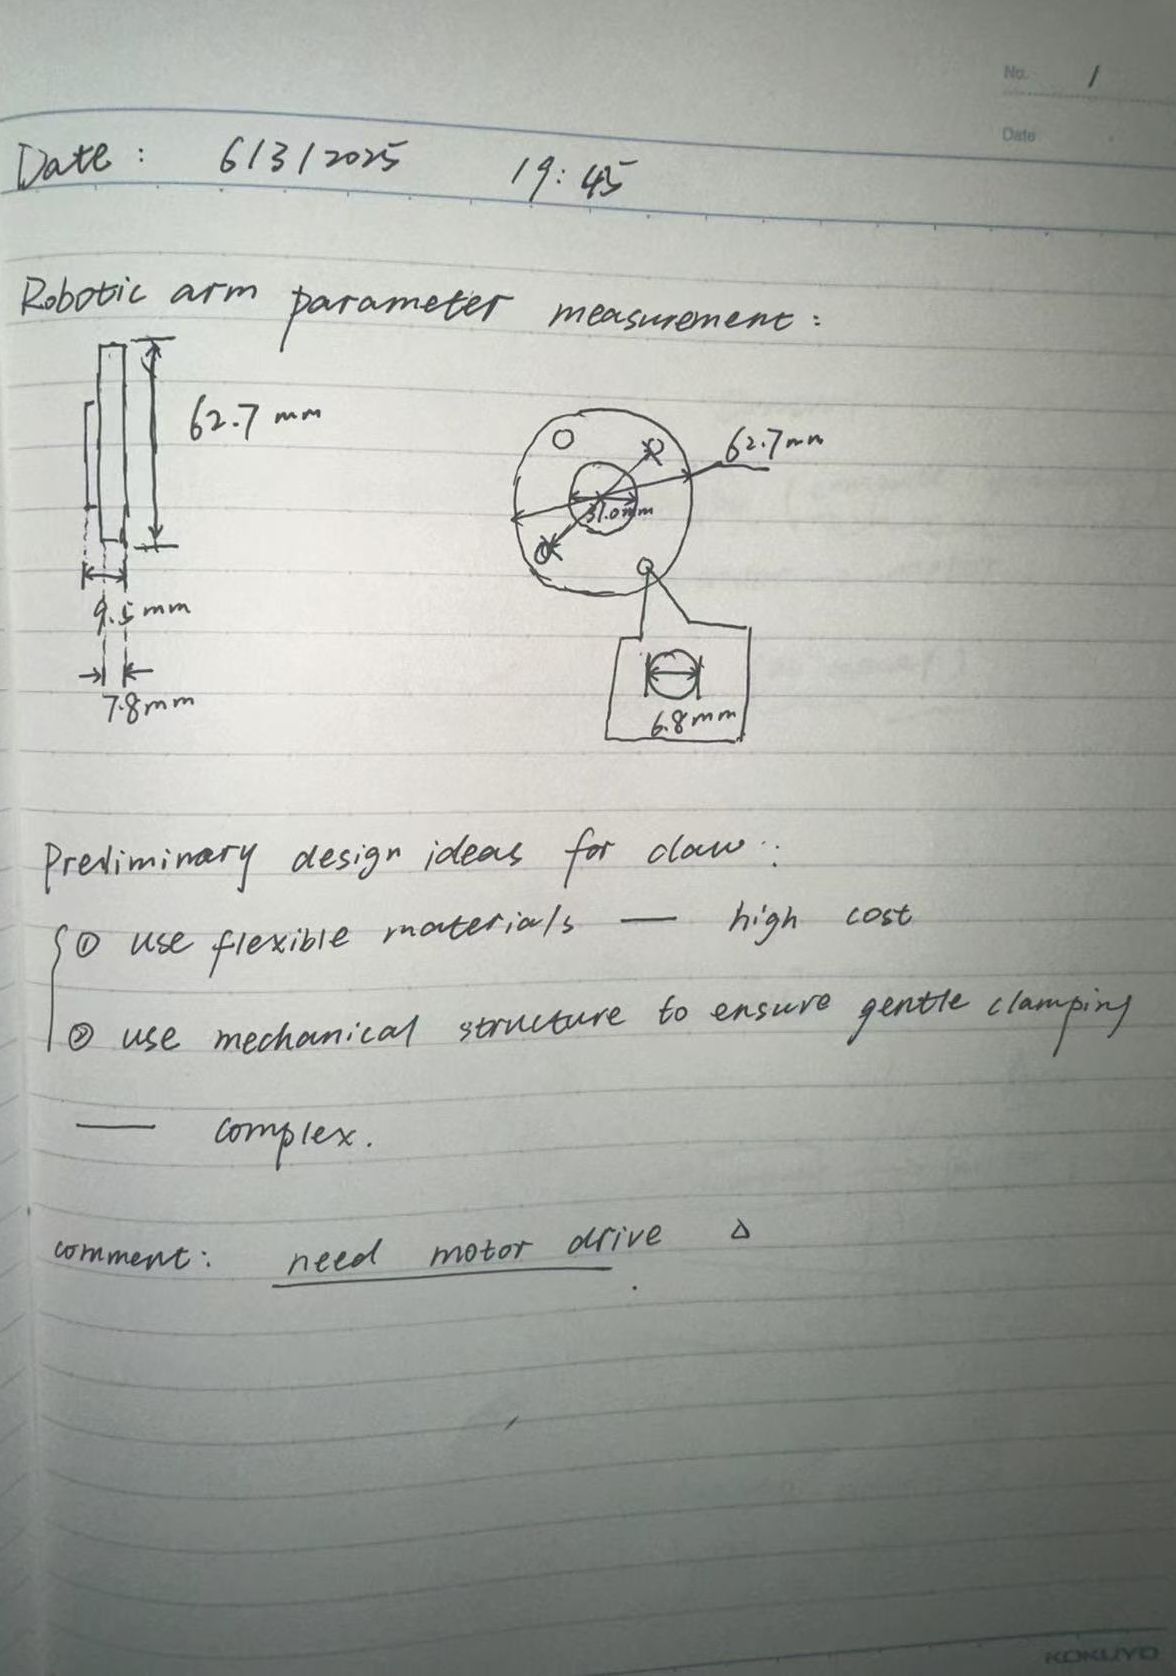 No. 1
Date
Date: 6/3/2025 19:45
Robotic arm parameter measurement:
62.7 mm
9.5 mm
7.8mm
62.7mm
31.0mm
6.8mm
Preliminary design ideas for claw:
① use flexible materials — high cost
② use mechanical structure to ensure gentle clamping
— complex.
comment: need motor drive △
KOKUYO